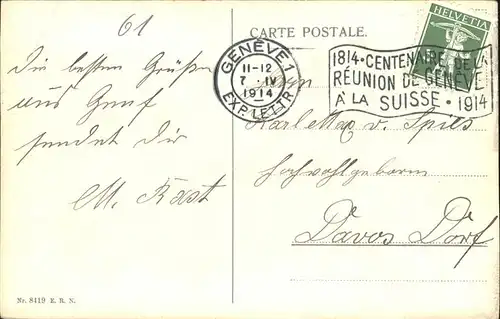 61
CARTE POSTALE.
HELVETIA
GENÈVE 1
11-12
7 · IV
1914
EXP. LETTR.
1814 · CENTENAIRE DE LA
RÉUNION DE GENÈVE
À LA SUISSE · 1914
Die besten Grüße
aus Genf
sendet Dir
M. Rast
Herrn
Karl Max v.
Hochwohlgeborn
Davos Dorf
Nr. 8119 E. R. N.